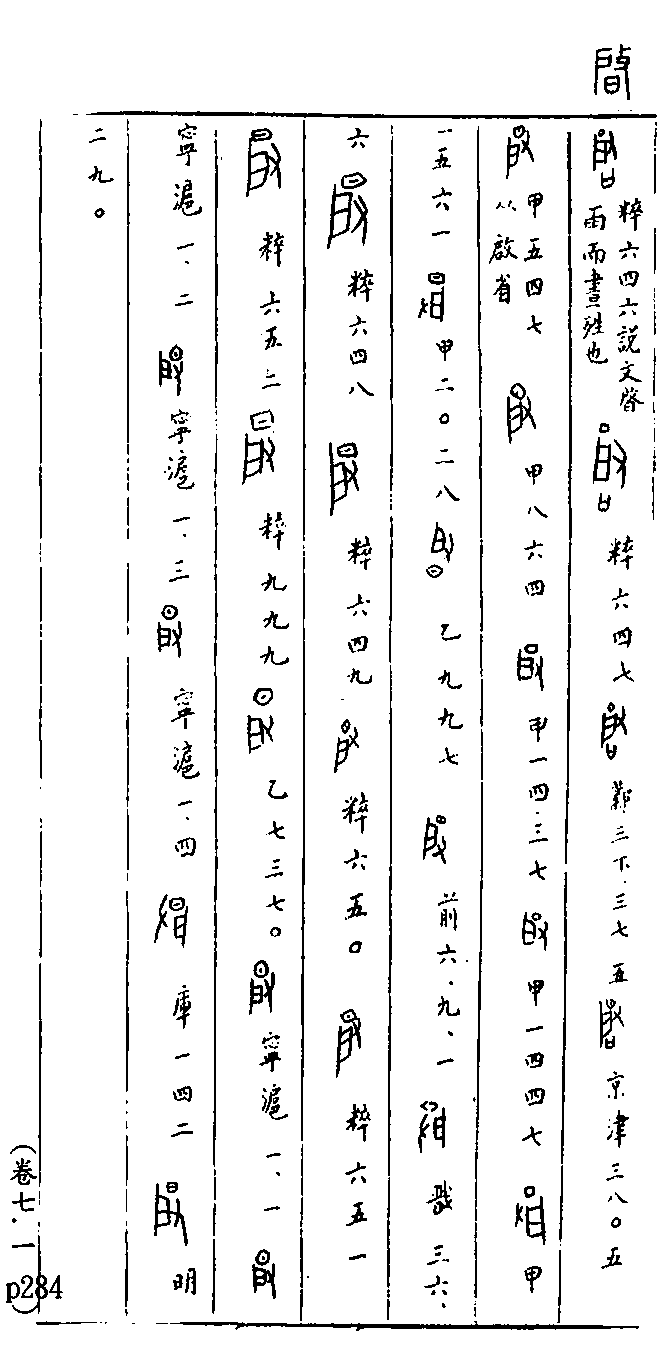 晵
粹六四六說文晵雨而晝姓也 粹六四七 鄴三下.三七五 京津三八〇五
甲五四七 从啟省 甲八六四 甲一四.三七 甲一四四七 甲
一五六一 甲二〇二八 乙九九七 前六.九.一 戩三六.
六 粹六四八 粹六四九 粹六五〇 粹六五一
粹六五二 粹九九九 乙七三七〇 寧滬一、一
寧滬一、二 寧滬一、三 寧滬一、四 庫一四二 明
二九〇
(卷七.一)
p284